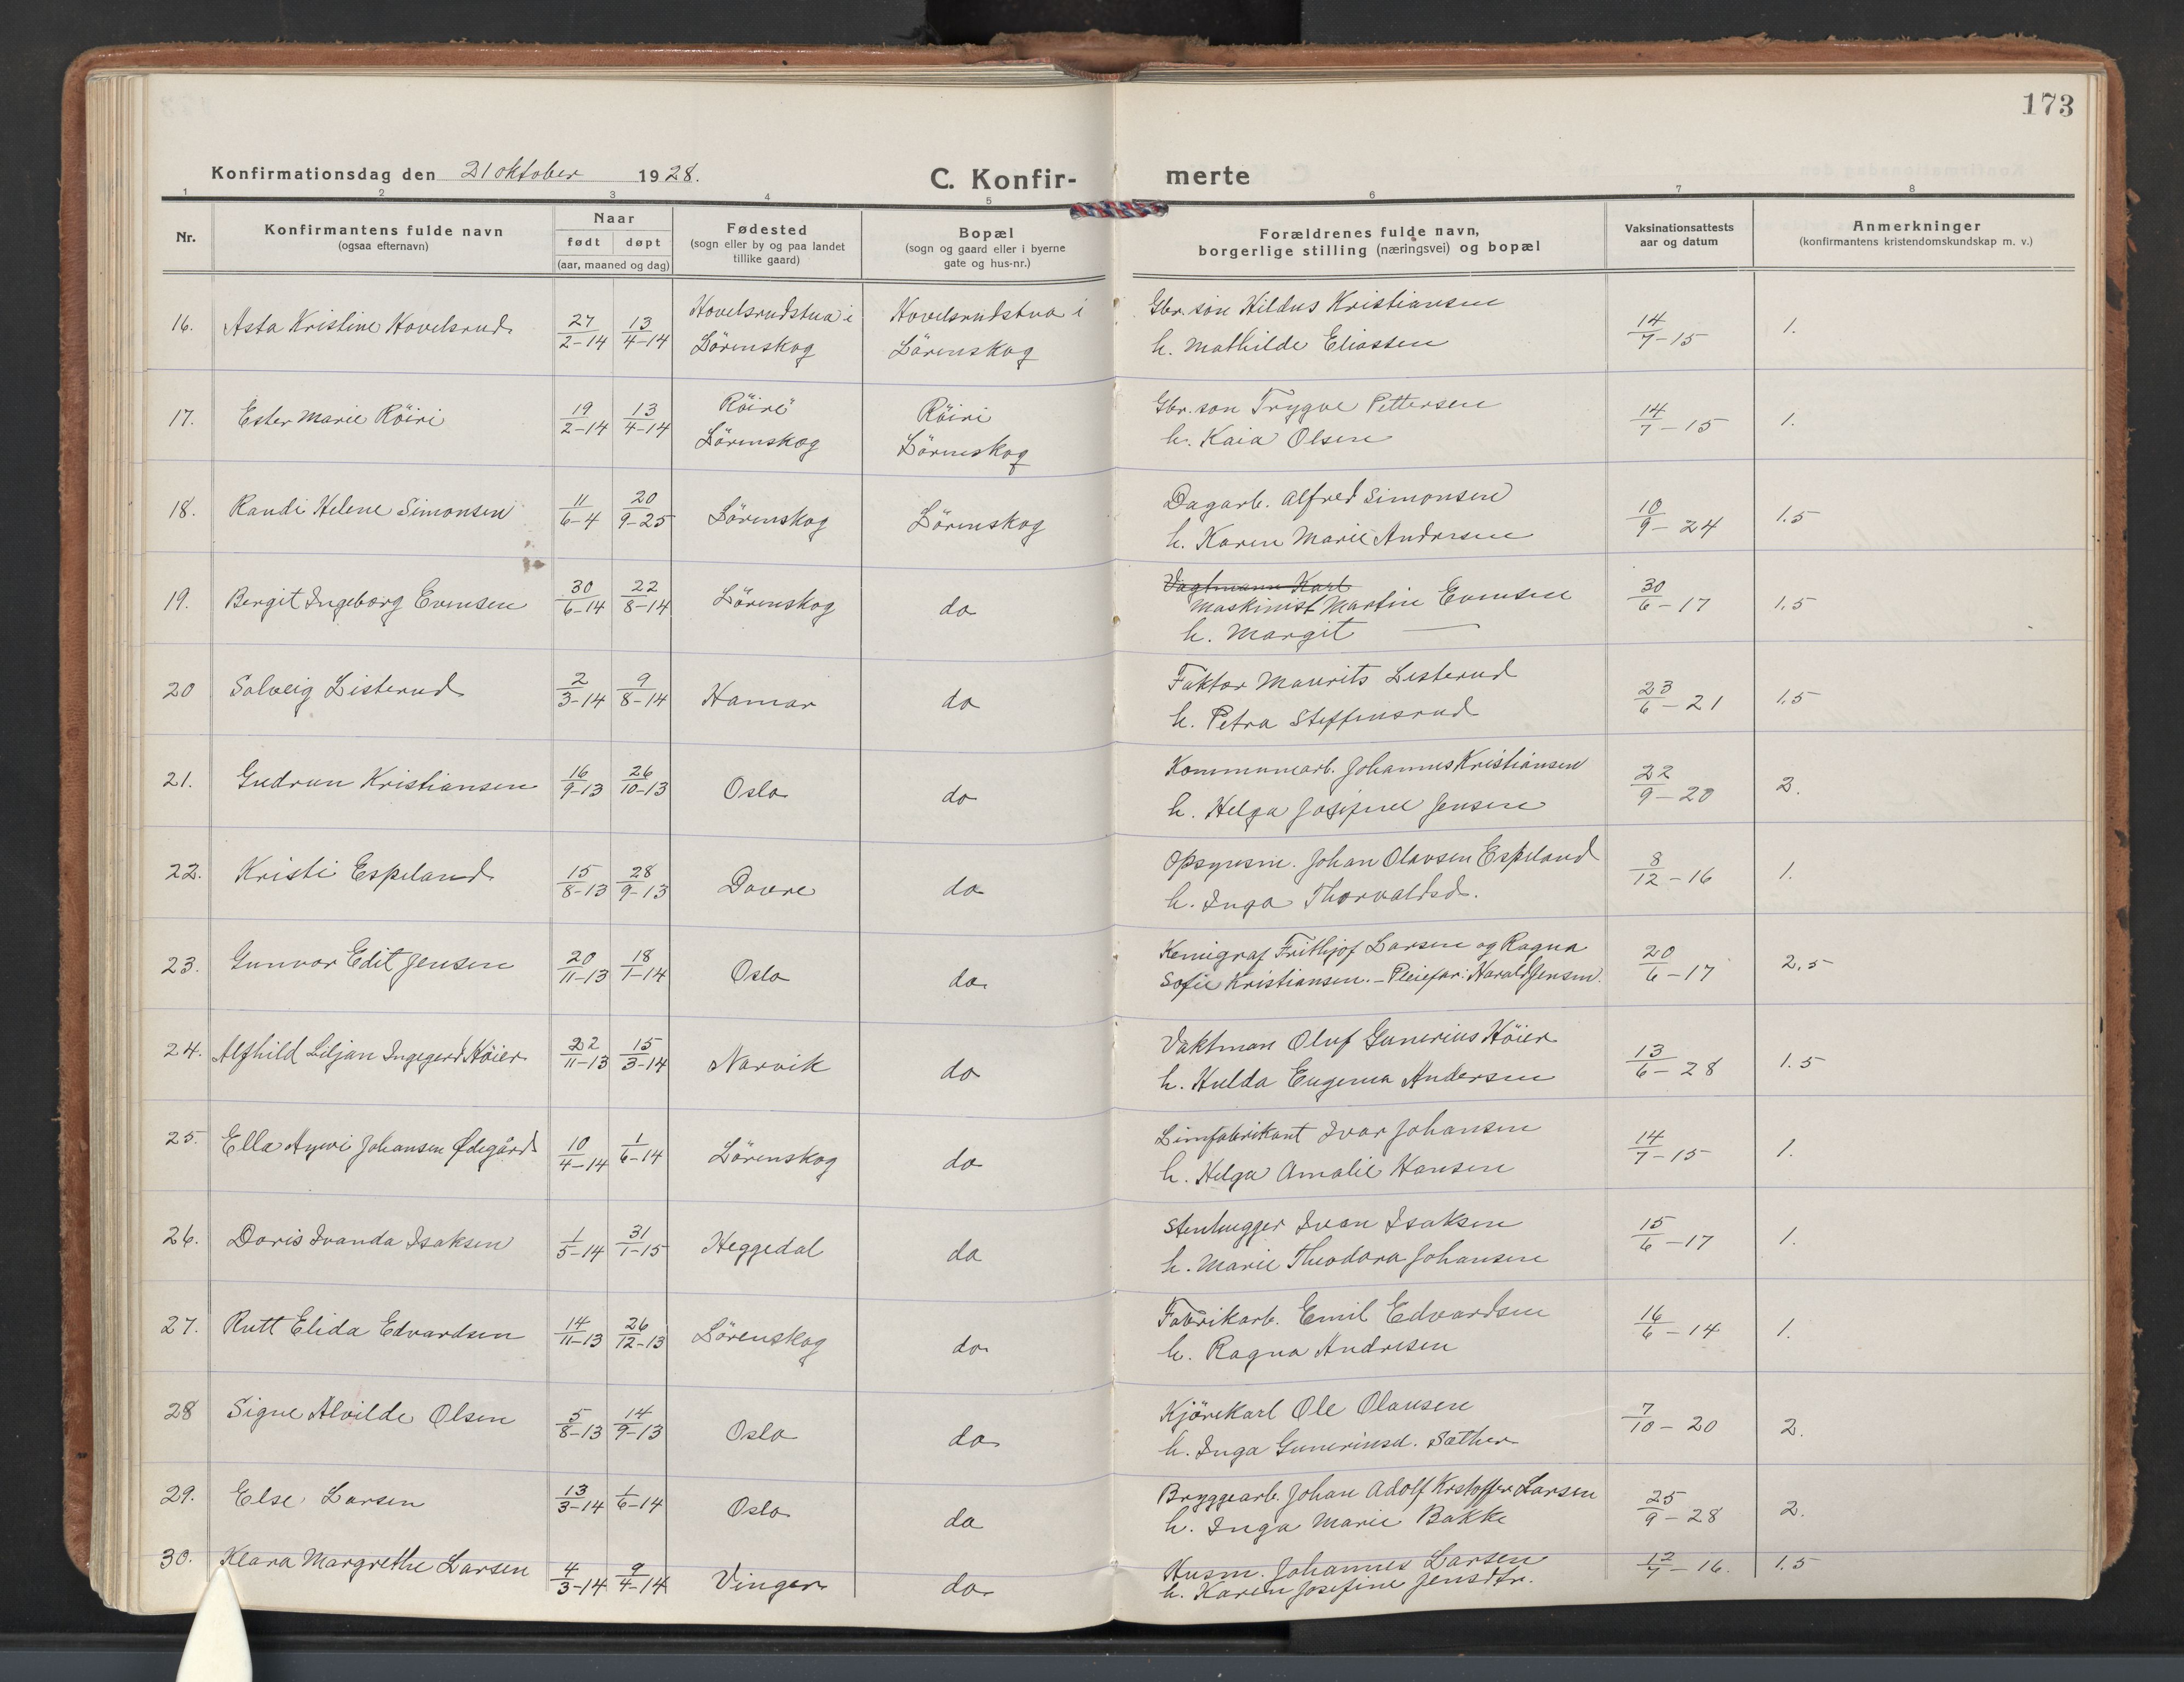 173
Konfirmationsdag den 21 oktober 1928.
C. Konfir- merte
1 2 3 4 5 6 7 8
Nr.
Konfirmantens fulde navn
(ogsaa efternavn)
Naar
født døpt
(aar, maaned og dag)
Fødested
(sogn eller by og paa landet
tillike gaard)
Bopæl
(sogn og gaard eller i byerne
gate og hus-nr.)
Forældrenes fulde navn,
borgerlige stilling (næringsvei) og bopæl
Vaksinationsattests
aar og datum
Anmerkninger
(konfirmantens kristendomskundskap m. v.)
16. Asta Kristine Hovelsrud 27/2-14 13/4-14 Hovelsrudstua i Hovelsrudstua i Gbr. søn Hildus Kristiansen 14/7-15 1.
Lörenskog Lörenskog h. Mathilde Eliassen
17. Ester Marie Röiri 19/2-14 13/4-14 Röiri Röiri Gbr. søn Trygve Pettersen 14/7-15 1.
Lörenskog Lörenskog h. Kaia Olsen
18. Randi Helene Simonsen 11/6-4 20/9-25 Lörenskog Lörenskog Dagarb. Alfred Simonsen 10/9-24 1.5
h. Karen Marie Andresen
19. Bergit Ingeborg Evensen 30/6-14 22/8-14 Lörenskog do Vagtmann Karl 30/6-17 1,5
Maskinist Martin Evensen
h. Margit —
20 Solveig Listerud 2/3-14 9/8-14 Hamar do Faktor Maurits Listerud 23/6-21 1,5
h. Petra Steffensrud
21. Gudrun Kristiansen 16/9-13 26/10-13 Oslo do Kommunearb. Johannes Kristiansen 22/9-20 2.
h. Helga Josefine Jensen
22. Kristi Espeland 15/8-13 28/9-13 Dovre do Opsynsm. Johan Olavsen Espeland 8/12-16 1.
h. Inga Thorvaldsd.
23. Gunvor Edit Jensen 20/11-13 18/1-14 Oslo do Kemigraf Frithjof Larsen og Ragna 20/6-17 2,5
Sofie Kristiansen. – Pleiefar: Harald Jensen.
24. Alfhild Liljan Ingegerd Höier 22/11-13 15/3-14 Narvik do Vaktman Oluf Gunerius Höier 13/6-28 1.5
h. Hulda Eugenia Andersen
25. Ella Johansen Ødegård 10/4-14 1/6-14 Lörenskog do Limfabrikant Ivar Johansen 14/7-15 1.
h. Helga Amalie Hansen
26. Doris Ivanda Isaksen 1/5-14 31/1-15 Heggedal do Stenhugger Ivan Isaksen 15/6-17 1.
h. Marie Theodora Johansen
27. Rutt Elida Edvardsen 14/11-13 26/12-13 Lörenskog do Fabrikarb. Emil Edvardsen 16/6-14 1.
h. Ragna Andresen
28 Signe Alvilde Olsen 5/8-13 14/9-13 Oslo do Kjörekarl Ole Olausen 7/10-20 2.
h. Inga Guneriusd. Sæther
29. Else Larsen 13/3-14 1/6-14 Oslo do Bryggearb. Johan Adolf Kristoffer Larsen 25/9-28 2.
h. Inga Marie Bakke
30. Klara Margrethe Larsen 4/3-14 9/4-14 Vinger do Husm. Johannes Larsen 12/7-16. 1.5
h. Karen Josefine Jensdtr.